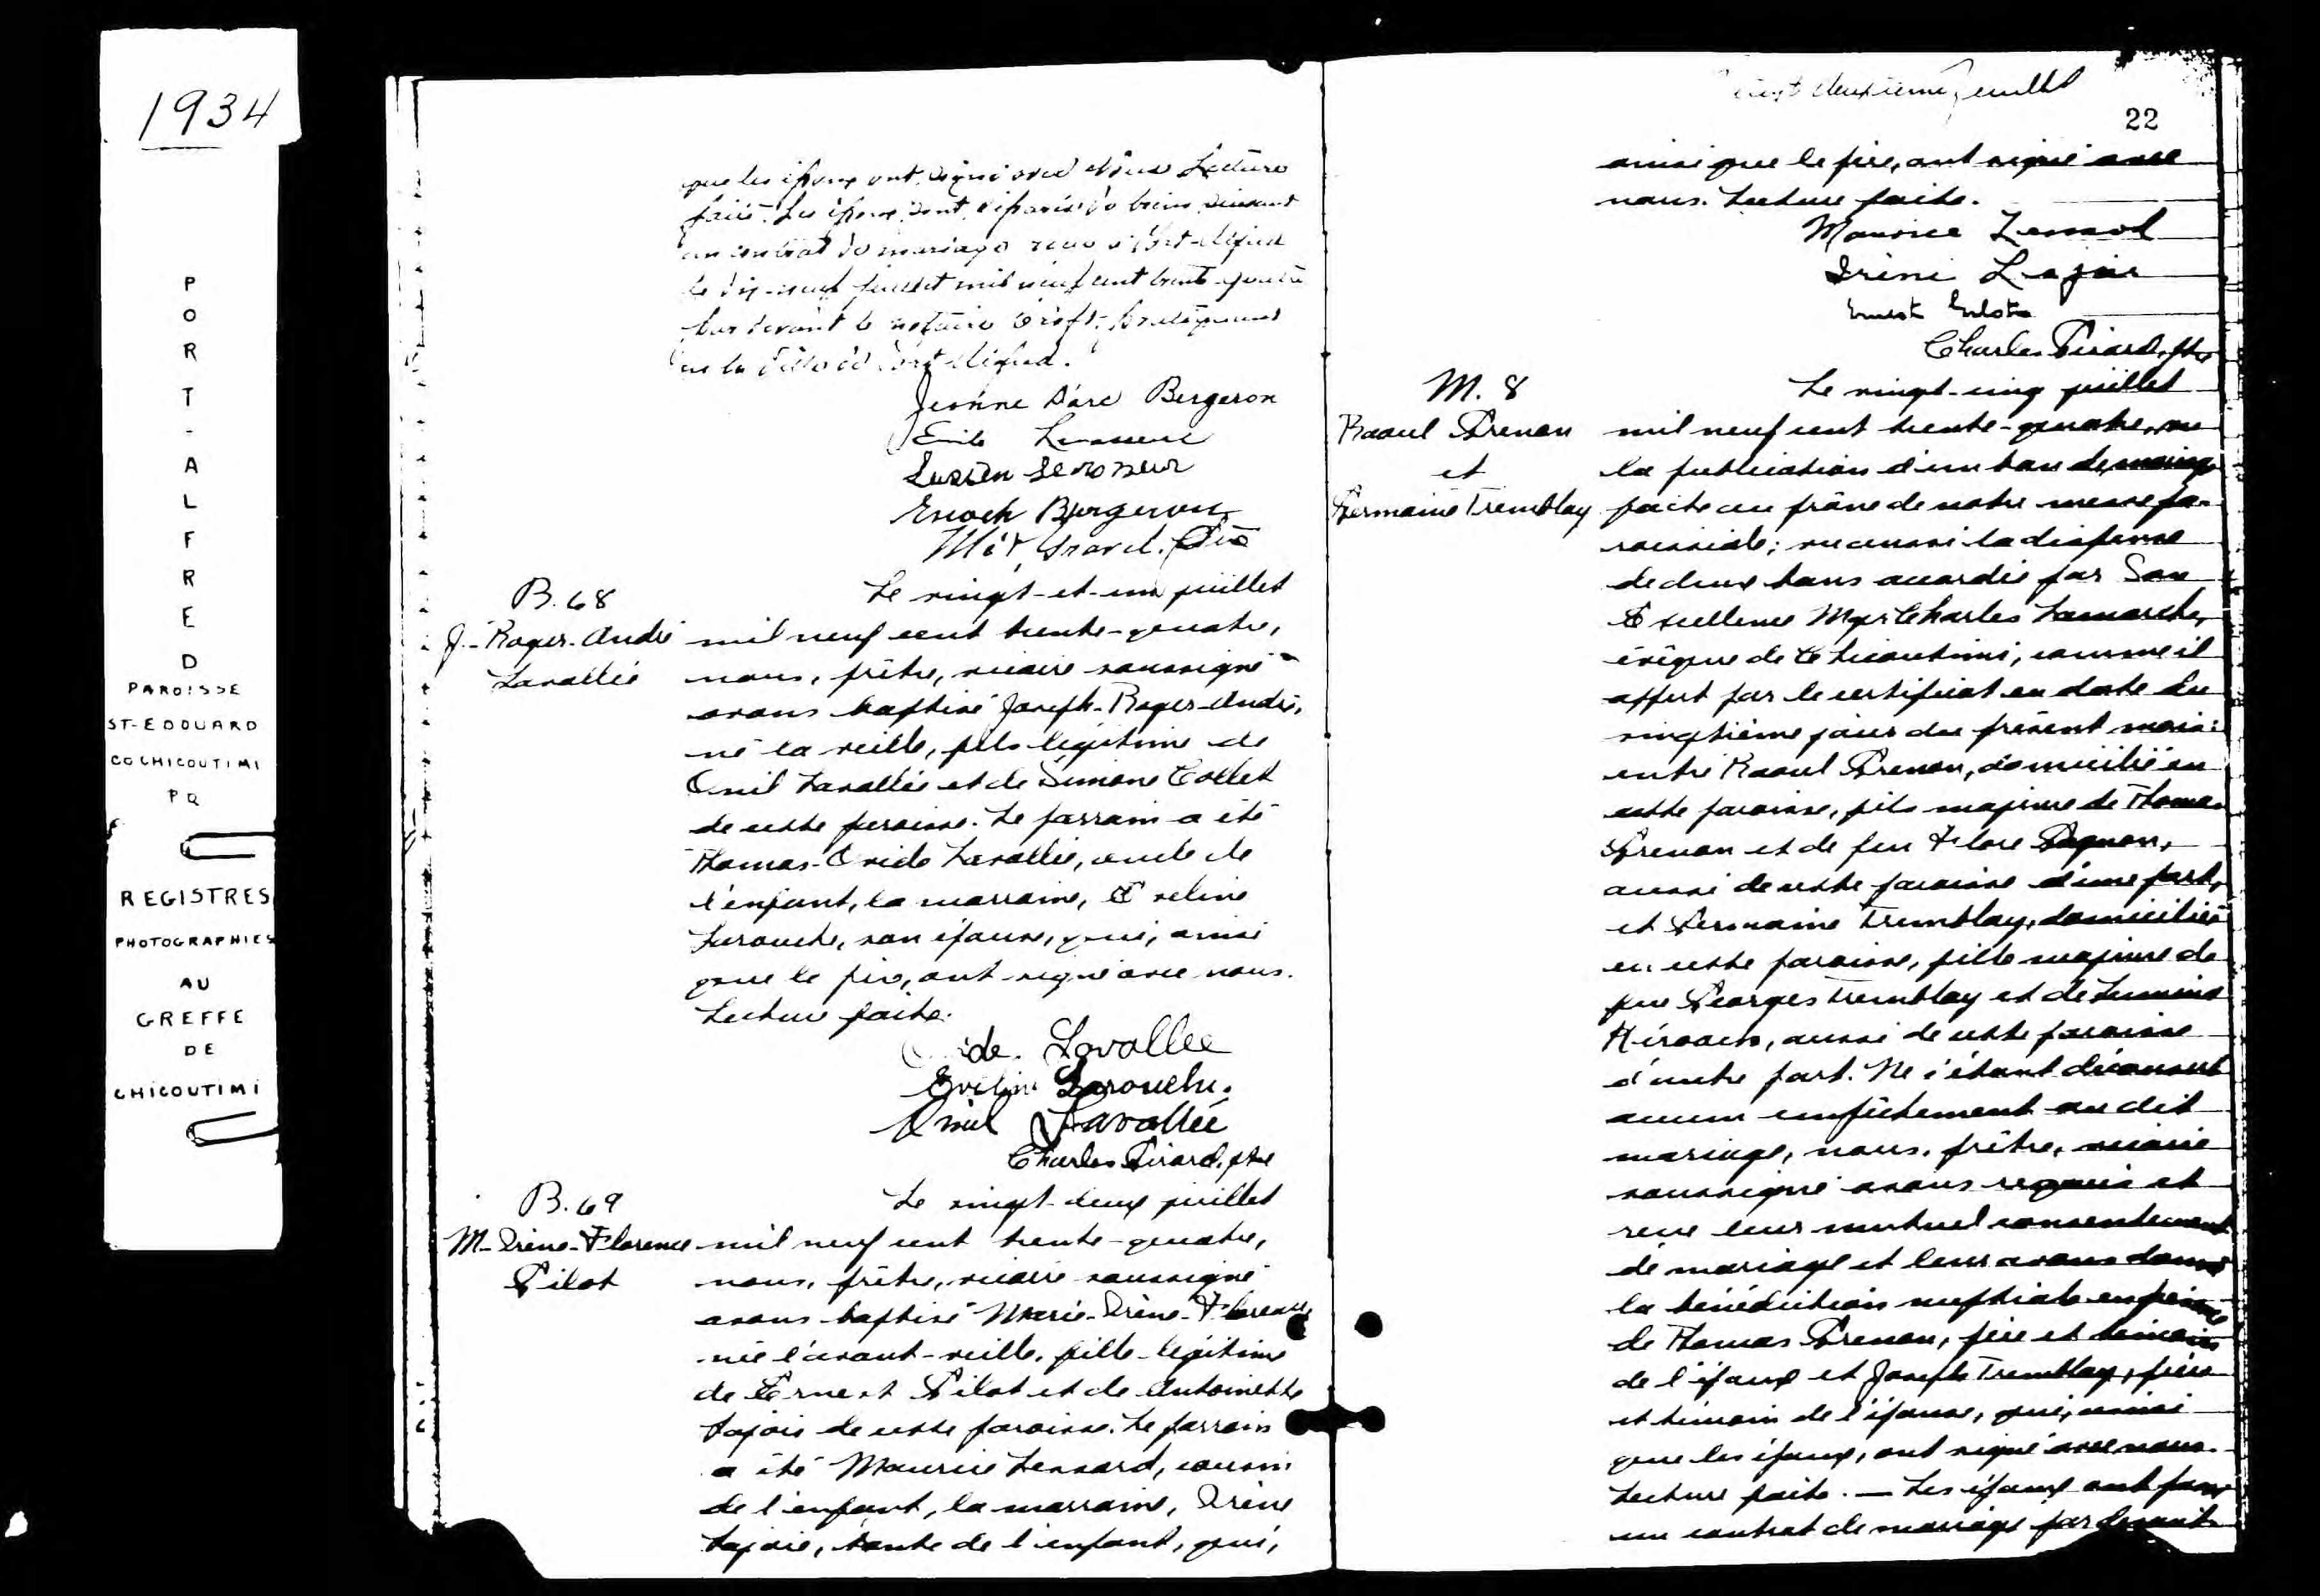 1934
PORT-ALFRED
PAROISSE
ST-EDOUARD
CO CHICOUTIMI
PQ
REGISTRES
PHOTOGRAPHIES
AU
GREFFE
DE
CHICOUTIMI
que les époux ont signé avec Nous Lecture
faite. Les époux sont séparés de biens suivant
un contrat de mariage reçu à Port-Alfred
le dix-neuf juillet mil neuf cent trente-quatre
par devant le notaire
de la ville de Port Alfred.
Jeanne D'arc Bergeron
Emile Levasseur
Lucien Levasseur
Enoch Bergeron
Gravel. Ptre
B. 68
J.-Roger-André
Lavallée
Le vingt-et-un juillet
mil neuf cent trente-quatre,
nous, prêtre, vicaire soussigné
avons baptisé Joseph-Roger-André,
né la veille, fils légitime de
Omil Lavallée et de Simone Collet
de cette paroisse. Le parrain a été
Thomas-Ovide Lavallée, oncle de
l'enfant, la marraine, Eveline
Larouche, son épouse, qui, ainsi
que le père, ont signé avec nous.
Lecture faite.
Ovide Lavallee
Eveline Larouche.
Omil Lavallée
Charles Girard, ptre
B. 69
M-Irène-Florence
Pilot
Le vingt-deux juillet
mil neuf cent trente-quatre,
nous, prêtre, vicaire soussigné
avons baptisé Marie-Irène-Florence
née l'avant-veille, fille légitime
de Ernest Pilot et de Antoinette
Lajoie de cette paroisse. Le parrain
a été Maurice Lessard, cousin
de l'enfant, la marraine, Irène
Lajoie, tante de l'enfant, qui,
vingt deuxième feuillet
22
ainsi que le père, ont signé avec
nous. Lecture faite.
Maurice Lessard
Irène Lajoie
Ernest
Charles Girard, ptre
M. 8
Raoul Grenon
et
Germaine Tremblay
Le vingt-cinq juillet
mil neuf cent trente-quatre, vu
la publication d'un ban de mariage
faite au prône de notre messe pa-
roissiale; vu aussi la dispense
de deux bans accordée par Son
Excellence Mgr Charles Lamarche,
évêque de Chicoutimi, comme il
appert par le certificat en date du
vingtième jour du présent mois:
entre Raoul Grenon, domicilié en
cette paroisse, fils majeur de Thomas
Grenon et de feu Flore Gagnon,
aussi de cette paroisse d'une part,
et Germaine Tremblay, domiciliée
en cette paroisse, fille majeure de
feu Georges Tremblay et de
aussi de cette paroisse
d'autre part. Ne s'étant découvert
aucun empêchement au dit
mariage, nous, prêtre, vicaire
soussigné avons requis et
reçu leur mutuel consentement
de mariage et leur avons donné
la bénédiction nuptiale en présence
de Thomas Grenon, père et témoin
de l'époux et Joseph Tremblay, frère
et témoin de l'épouse, qui, ainsi
que les époux, ont signé avec nous.
Lecture faite. — Les époux ont passé
un contrat de mariage par devant